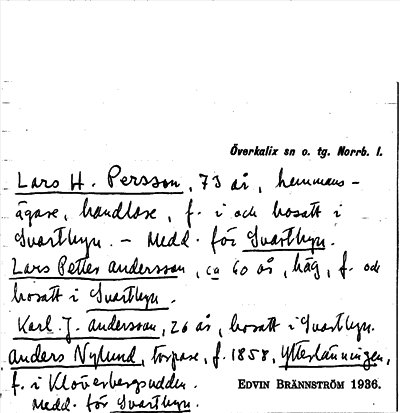 Överkalix sn o. tg. Norrb. l.
Lars H. Persson, 73 år, hemmans-
ägare, handlare, f. i och bosatt i
Svartbyn. – Medd. för Svartbyn.
Lars Petter Andersson, ca 60 år, häg, f. och
bosatt i Svartbyn.
Karl J. Andersson, 26 år, bosatt i Svartbyn.
Anders Nylund, torpare, f. 1858, Ytterlänningen,
f. i Klöverbergsudden.
EDVIN BRÄNNSTRÖM 1936.
Medd. för Svartbyn.